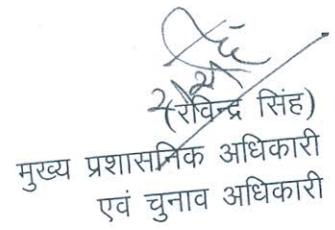 (रविन्द्र सिंह)
मुख्य प्रशासनिक अधिकारी
एवं चुनाव अधिकारी